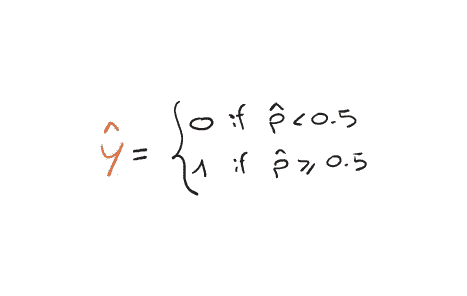 ŷ = { 0 if p̂ < 0.5
1 if p̂ ⩾ 0.5